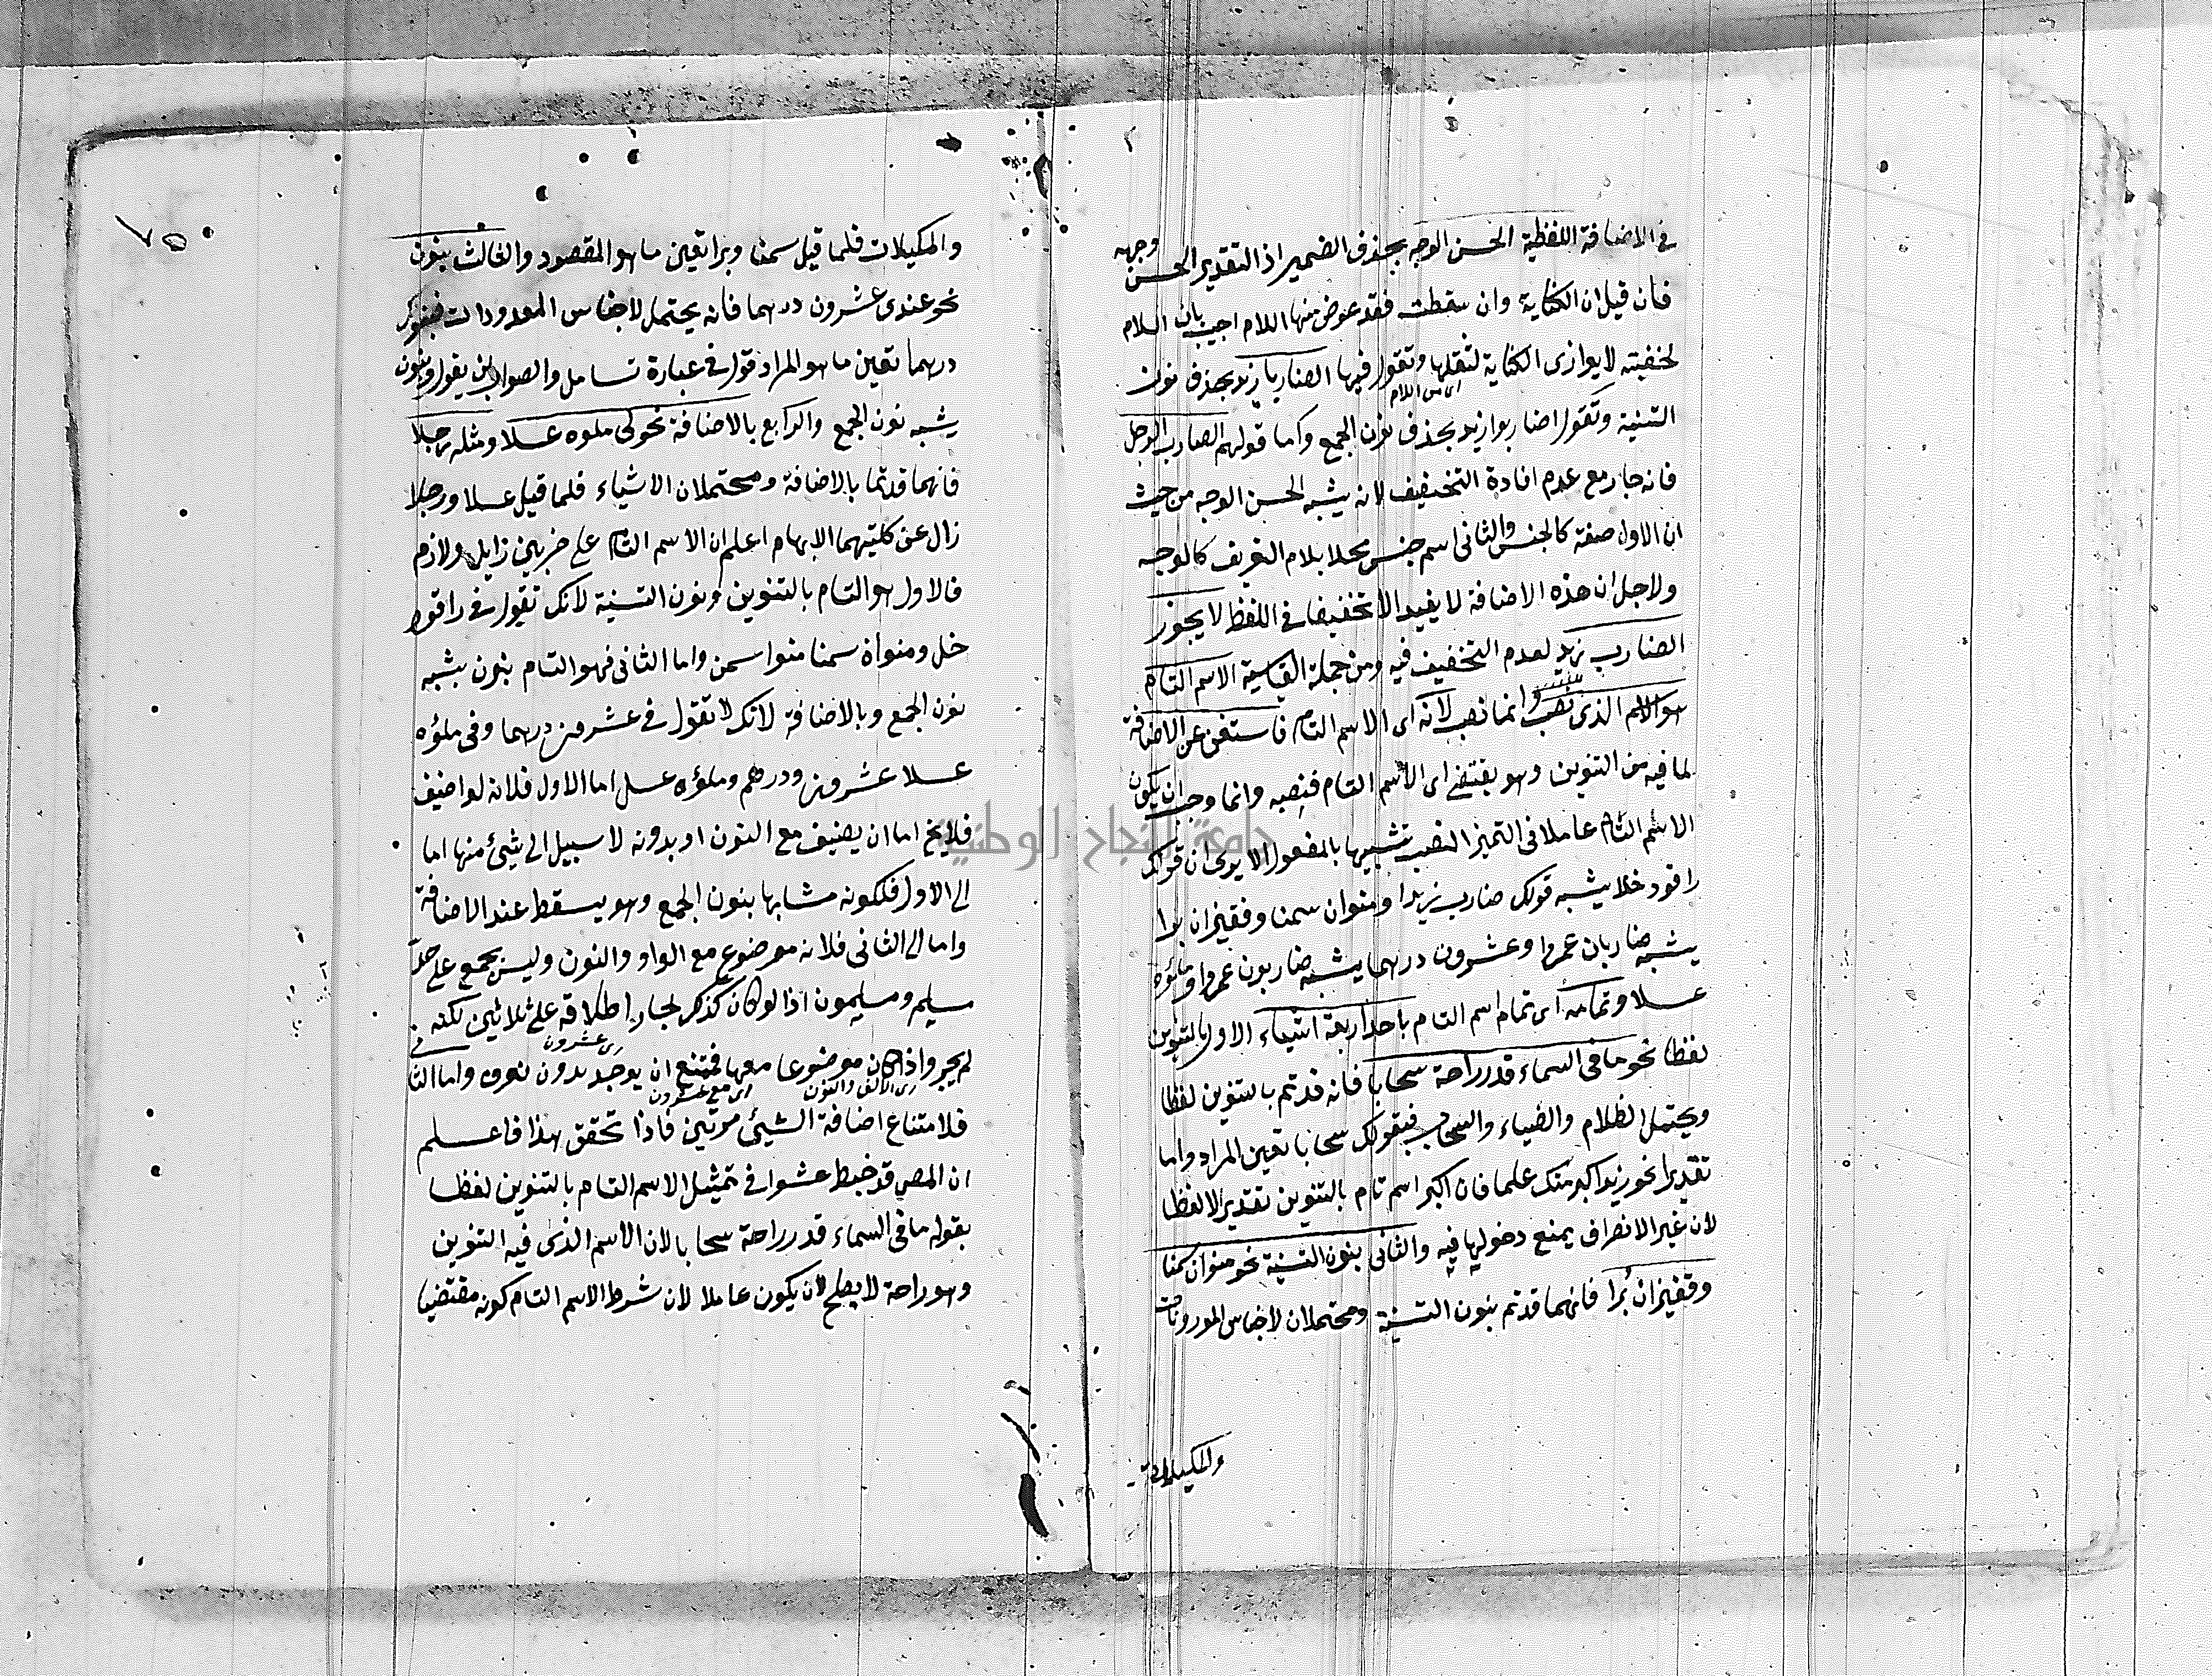 في الاضافة اللفظية الحسن الوجه بحذف الضمير اذ التقدير الحسن وجهه
فان قيل ان الكناية وان سقطت فقد عوض منها اللام اجيب بان اللام
لخفته لا يوازى الكناية لثقلها وتقول فيها الضاربا زيد بحذف نون
اى من اللام
التثنية وتقول الضاربوا زيد بحذف نون الجمع واما قولهم الضارب الرجل
فانه جاز مع عدم افادة التخفيف لانه يشبه الحسن الوجه من حيث
ان الاول صفة كالجنس والثانى اسم جنس محلا بلام التعريف كالوجه
ولاجل ان هذه الاضافة لا يفيد الا تخفيفا في اللفظ لا يجوز
الضارب زيد لعدم التخفيف فيه ومن جملة القياسية الاسم التام
هو الاسم الذى نصب وانما نصب لانه اى الاسم التام فاستغنى عن الاضافة
لما فيه من التنوين وهو يقتضى اى الاسم التام فنصبه وانما وجب ان يكون
الاسم التام عاملا فى التميز النصب تشبيها بالمفعول الا يرى ان قولك
راقود خلا يشبه قولك ضارب زيدا ومنوان سمنا وقفيزان برا
يشبه ضاربان عمروا وعشرون درهما يشبه ضاربون عمروا وملؤه
عسلا وتمامه اى تمام اسم التام باحد اربعة اشياء الاول بالتنوين
لفظا نحو ما فى السماء قدر راحة سحابا فانه قد تم بالتنوين لفظا
ويحتمل الظلام والضياء والسحاب فبقولك سحابا تعين المراد واما
تقديرا نحو زيد اكبر منك علما فان اكبر اسم تام بالتنوين تقديرا لا لفظا
لان غير الانصراف يمنع دخولها فيه والثانى بنون التثنية نحو منوان سمنا
وقفيزان برا فانهما قد تم بنون التثنية ومحتملان لاجناس الموزونات
والمكيلات
والمكيلات فلما قيل سمنا وبرا تعين ما هو المقصود والثالث بنون
نحو عندى عشرون درهما فانه يحتمل لاجناس المعدودات فبقولك
درهما تعين ما هو المراد قوله في عبارة تسامل والصواب ان يقول وبنون
يشبه نون الجمع والرابع بالاضافة نحو لى ملوه عسلا ومثله رجلا
فانهما قد تما بالاضافة ومحتملان الاشياء فلما قيل عسلا ورجلا
زال عن كليتهما الابهام اعلم ان الاسم التام على ضربين زايل ولازم
فالاول هو التام بالتنوين ونون التثنية لانك تقول في راقود
خل ومنواة سمنا منوا سمن واما الثانى فهو التام بنون يشبه
نون الجمع وبالاضافة لانك لا تقول في عشرون درهما وفى ملؤه
عسلا عشرون ودرهم وملؤه عسل اما الاول فلانه لو اضيف
فلا يخ اما ان يضيف مع النون او بدونه لا سبيل الى شيئ منها اما
الى الاول فلكونه مشابها بنون الجمع وهو يسقط عند الاضافة
واما الى الثانى فلانه موضوع مع الواو والنون وليس بجمع على حد
مسلم ومسلمون اذا لو كان كذلك لجاز اطلاقه على ثلاثين لكنه
اى عشرون
لم يجز واذا كان موضوعا معها فمتنع ان يوجد بدون نعرف واما الثا
اى الالف والنون اى مع عشرون
فلامتناع اضافة الشيئ مرتين فاذا تحقق هذا فاعلم
ان المص قد خبط عشوا في تمثيل الاسم التام بالتنوين لفظا
بقوله ما فى السماء قدر راحة سحابا لان الاسم الذى فيه التنوين
وهو راحة لا يصلح لان يكون عاملا لان شرط الاسم التام كونه مقتضيا
جامعة النجاح الوطنية